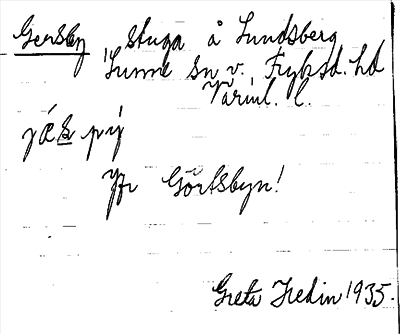 Gersby, stuga å Lundsberg
Sunne sn v., Fryksd. hd
Värml. l.
Jfr Görtsbyn!
Greta Hedin 1935.